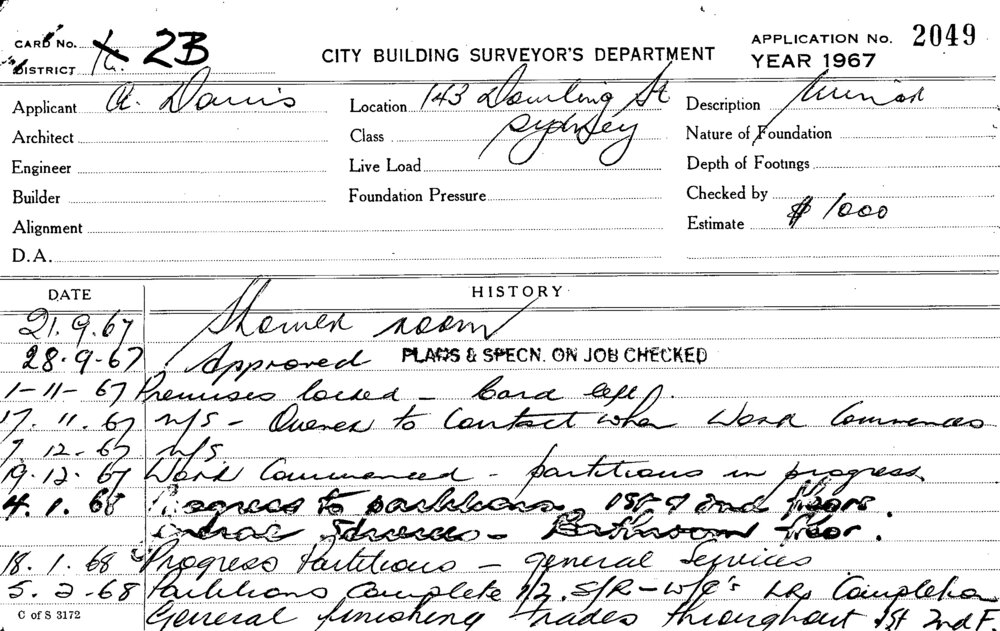 CARD No. 2B
DISTRICT
CITY BUILDING SURVEYOR'S DEPARTMENT
APPLICATION No. 2049
YEAR 1967
Applicant A. Davis
Location 143 Dowling St Sydney
Description Minor
Architect
Class
Nature of Foundation
Engineer
Live Load
Depth of Footings
Builder
Foundation Pressure
Checked by
Alignment
Estimate $ 1000
D.A.
DATE HISTORY
21.9.67 Shower room
28.9.67 Approved PLANS & SPECN. ON JOB CHECKED
1-11-67 Premises locked - Card left.
17.11.67 N/S - Owner to Contact when Work Commences
7.12.67 N/S.
19.12.67 Work Commenced - partitions in progress.
4.1.68 Progress to partitions 1st & 2nd floors.
Services - Bathroom floor.
18.1.68 Progress Partitions - general Services
5.2.68 Partitions Complete S/R - W/C's Completion
General finishing trades throughout 1st 2nd F.
C of S 3172